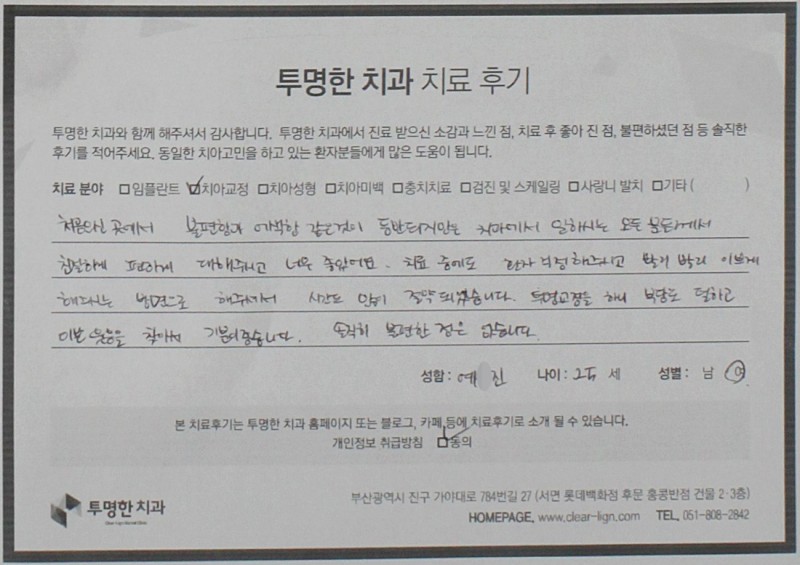 투명한 치과 치료 후기
투명한 치과와 함께 해주셔서 감사합니다. 투명한 치과에서 진료 받으신 소감과 느낀 점, 치료 후 좋아 진 점, 불편하셨던 점 등 솔직한
후기를 적어주세요. 동일한 치아고민을 하고 있는 환자분들에게 많은 도움이 됩니다.
치료 분야 □임플란트 ☑치아교정 □치아성형 □치아미백 □충치치료 □검진 및 스케일링 □사랑니 발치 □기타 ( )
처음오신 곳에서 불편함과 어색함 같은것이 동반되지만는 치과에서 일하시는 모든 분들께서
친절하게 편하게 대해주시고 너무 좋았어요. 치료 중에도 걱정해주시고 빨리 빨리 이쁘게
해주시는 방면으로 해주셔서 시간도 많이 절약 되었습니다. 투명교정을 하니 부담도 덜하고
이쁜 웃음을 찾아서 기분이좋습니다. 솔직히 불편한 점은 없습니다.
성함 : 예 진 나이 : 25 세 성별 : 남 여
본 치료후기는 투명한 치과 홈페이지 또는 블로그, 카페 등에 치료후기로 소개 될 수 있습니다.
개인정보 취급방침 ☑동의
투명한 치과
부산광역시 진구 가야대로 784번길 27 (서면 롯데백화점 후문 홍콩반점 건물 2·3층)
HOMEPAGE. www.clear-lign.com TEL. 051-808-2842